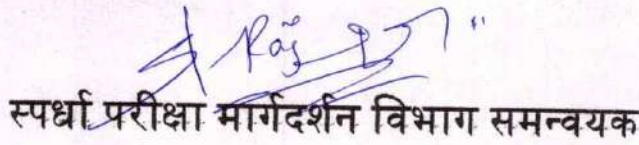 स्पर्धा परीक्षा मार्गदर्शन विभाग समन्वयक